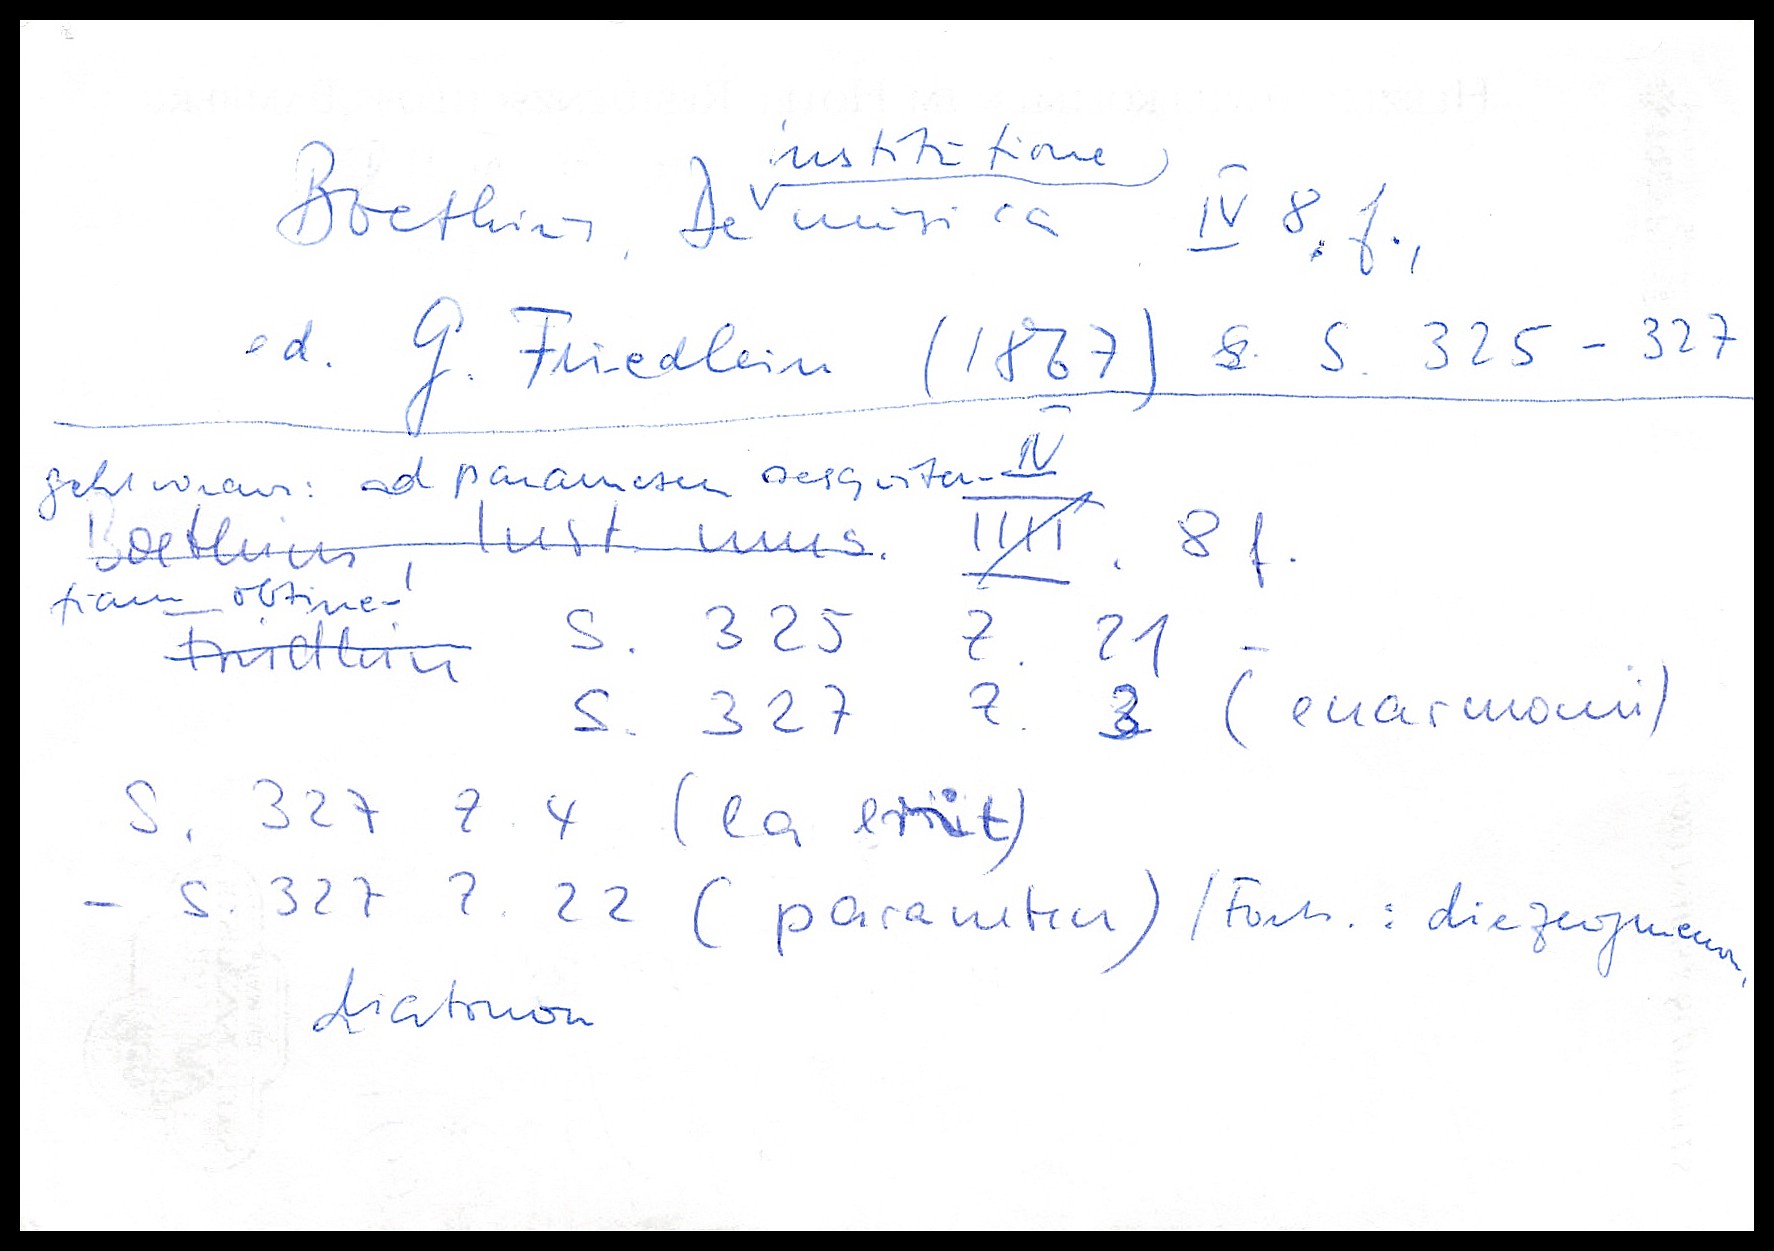 institutione
Boethius, De musica IV 8. f.,
ed. G. Friedlein (1867) S. 325 - 327
IV
geht voraus: ad paramesen sesquiter-
Boethius, Inst. mus. IIII. 8 f.
tiam obtinet
Friedlein S. 325 Z. 21 -
S. 327 Z. 3 (enarmonii)
S. 327 Z. 4 (ea erit)
- S. 327 Z. 22 (parameten) / Forts. : diezeugmenon,
diatonon